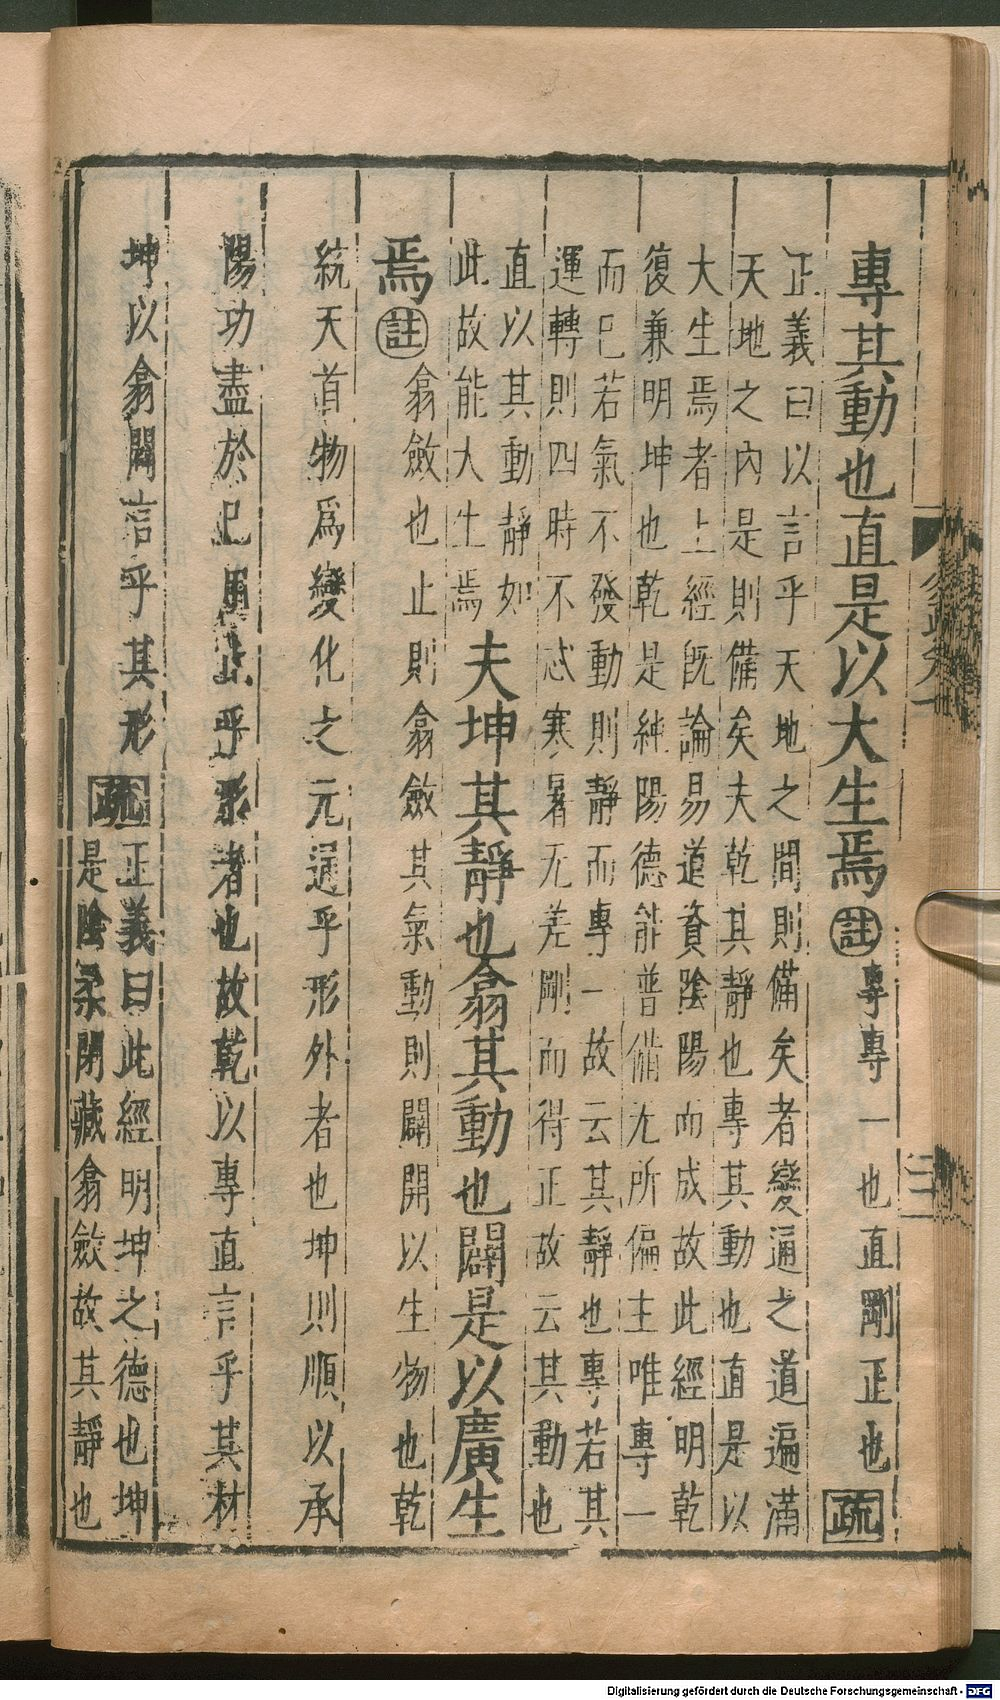 專其動也直是以大生焉註專專一也直剛正也疏
正義曰以言乎天地之間則備矣者變通之道遍滿
天地之內是則備矣夫乾其靜也專其動也直是以
大生焉者上經既論易道資陰陽而成故此經明乾
復兼明坤也乾是純陽德能普備无所偏主唯專一
而已若氣不發動則靜而專一故云其靜也專若其
運轉則四時不忒寒暑无差剛而得正故云其動也
直以其動靜如
此故能大生焉夫坤其靜也翕其動也闢是以廣生
焉註翕斂也止則翕斂其氣動則闢開以生物也乾
統天首物爲變化之元通乎形外者也坤則順以承
陽功盡於已用止乎形者也故乾以專直言乎其材
坤以翕闢言乎其形疏正義曰此經明坤之德也坤
是陰柔閉藏翕斂故其靜也
Digitalisierung gefördert durch die Deutsche Forschungsgemeinschaft - DFG